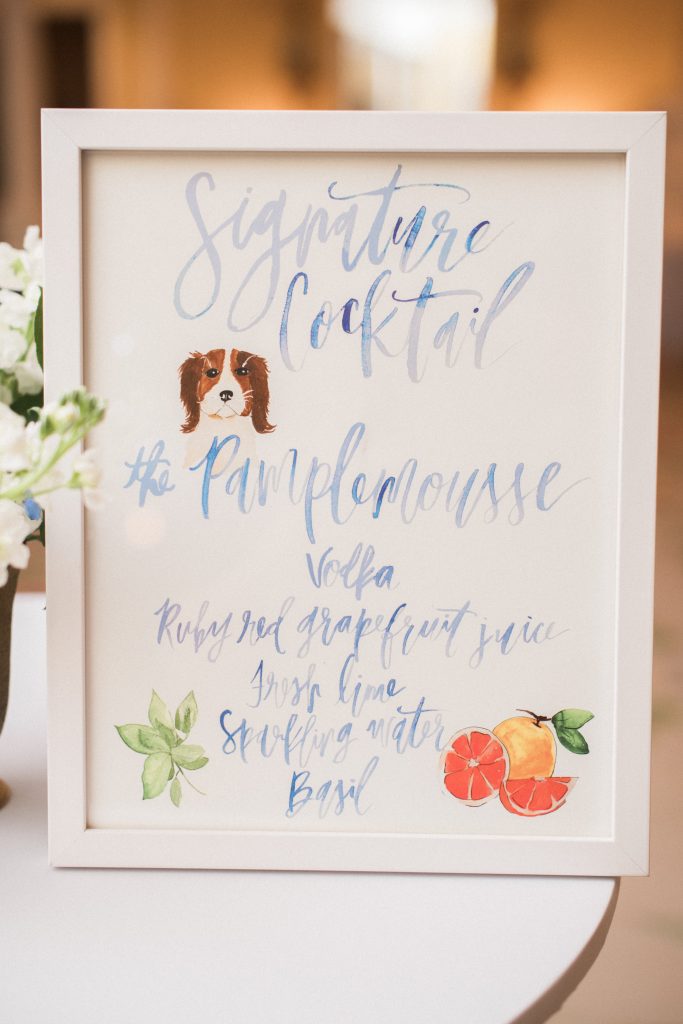 Signature
Cocktail
the Pamplemousse
Vodka
Ruby red grapefruit juice
Fresh lime
Sparkling water
Basil